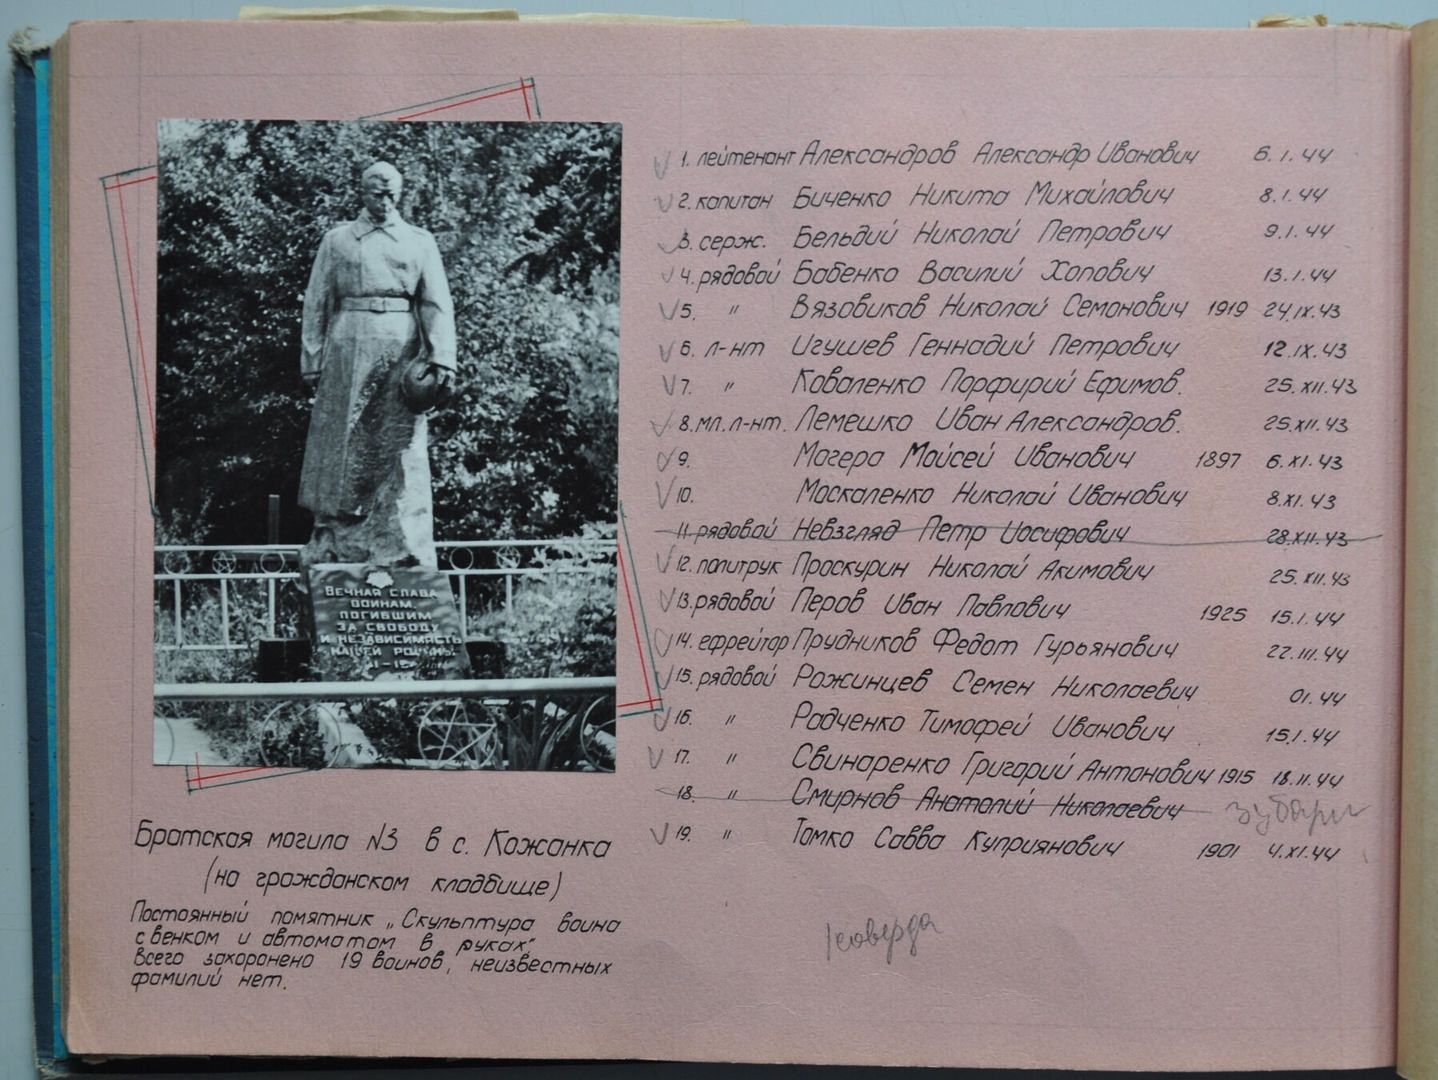 ВЕЧНАЯ СЛАВА
ВОИНАМ,
ПОГИБШИМ
ЗА СВОБОДУ
И НЕЗАВИСИМЯСТЬ
НАШЕЙ РОДИНЫ.
Братская могила №3 в с. Кожанка
(на гражданском кладбище)
Постоянный памятник „Скульптура воина
с венком и автоматом в руках".
Всего захоронено 19 воинов, неизвестных
фамилий нет.
1. лейтенант Александров Александр Иванович 6.1.44
2. капитан Биченко Никита Михайлович 8.1.44
3. серж. Бельдий Николай Петрович 9.1.44
4. рядовой Бабенко Василий Хопович 13.1.44
5. " Вязовиков Николай Семонович 1919 24.IX.43
6. л-нт Игушев Геннадий Петрович 12.IX.43
7. " Коваленко Порфирий Ефимов. 25.XII.43
8. мл. л-нт. Лемешко Иван Александров. 25.XII.43
9. Магера Мойсей Иванович 1897 6.XI.43
10. Москаленко Николай Иванович 8.XI.43
11. рядовой Невзгляд Петр Иосифович 28.XII.43
12. политрук Проскурин Николай Акимович 25.XII.43
13. рядовой Перов Иван Павлович 1925 15.1.44
14. ефрейтор Прудников Федот Гурьянович 22.III.44
15. рядовой Рожинцев Семен Николаевич 01.44
16. " Радченко Тимофей Иванович 15.1.44
17. " Свинаренко Григорий Антонович 1915 18.11.44
18. " Смирнов Анатолий Николаевич Зубари
19. " Томко Савва Куприянович 1901 4.XI.44
Коверда